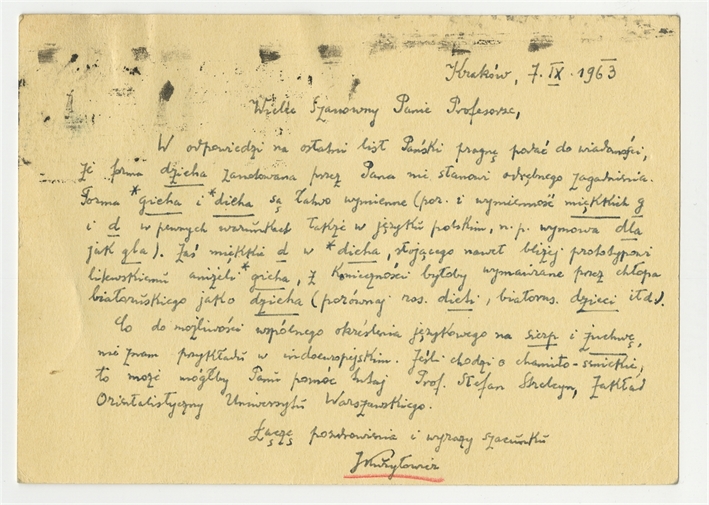 Kraków, 7. IX. 1963
Wielce Szanowny Panie Profesorze,
W odpowiedzi na ostatni list Pański pragnę podać do wiadomości,
że forma dzicha zanotowana przez Pana nie stanowi odrębnego zagadnienia.
Forma *gicha i *dicha są łatwo wymienne (por. i wymienność miękkich g
i d w pewnych warunkach także w języku polskim, n.p. wymowa dla
jak gla). Zaś miękkie d w *dicha, stojącego nawet bliżej prototypowi
litewskiemu aniżeli *gicha, z konieczności byłoby wymawiane przez chłopa
białoruskiego jako dzicha (porównaj ros. dieti, białorus. dzieci itd.).
Co do możliwości wspólnego określenia językowego na sierp i żuchwę,
nie znam przykładu w indoeuropejskim. Jeśli chodzi o chamito-semickie,
to może mógłby Panu pomóc tutaj Prof. Stefan Strelcyn, Zakład
Orientalistyczny Uniwersytetu Warszawskiego.
Łączę pozdrowienia i wyrazy szacunku
JKuryłowicz